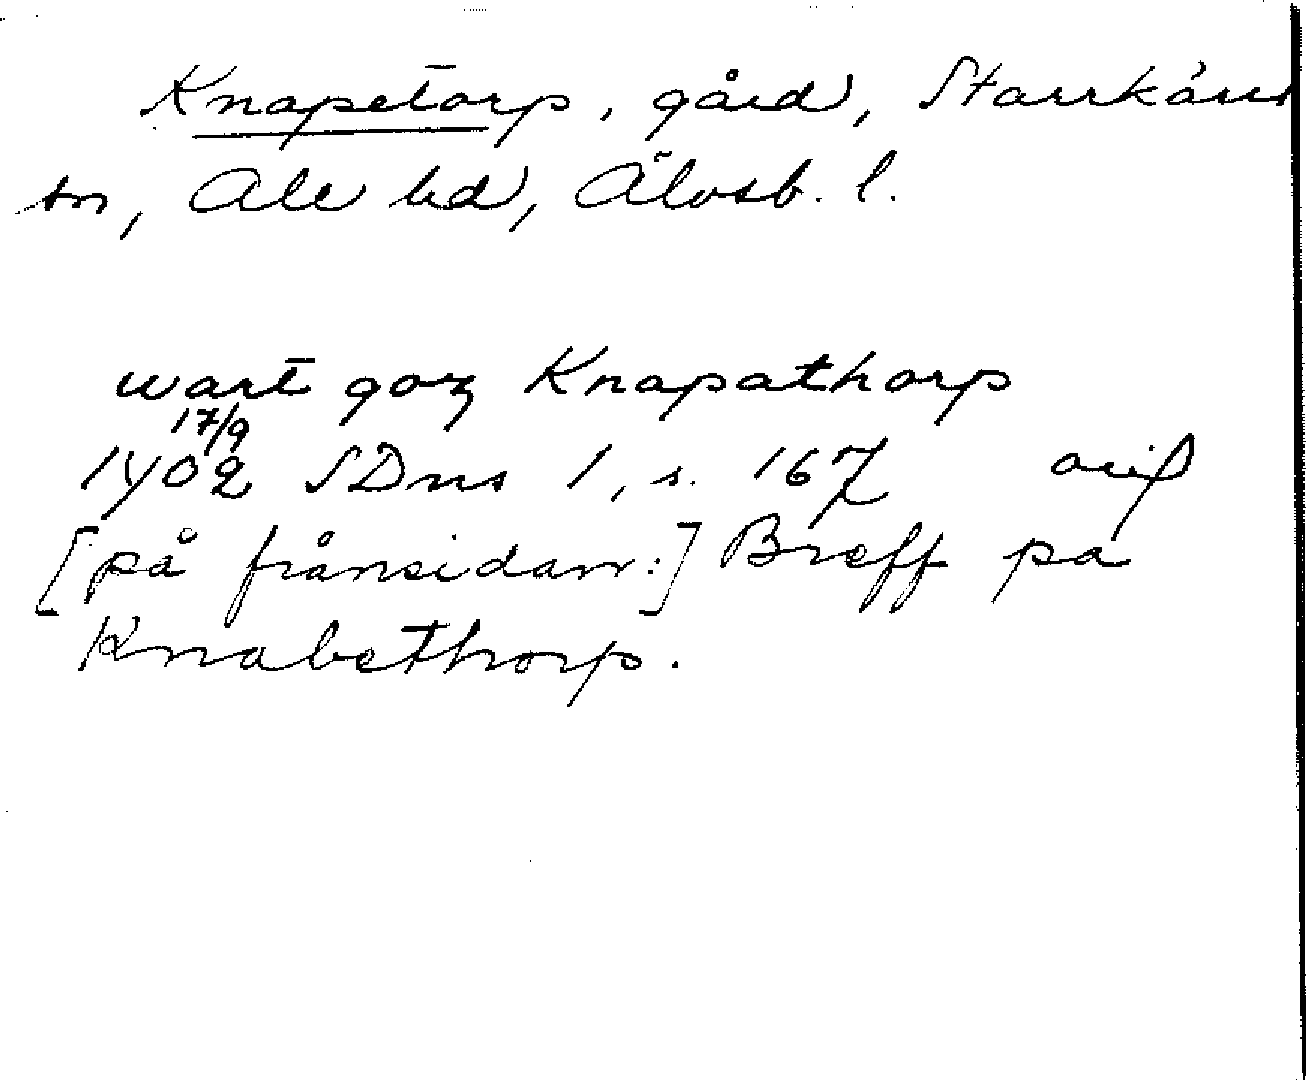 Knapetorp, gård, Starrkärrs
sn, Ale hd, Älvsb. l.
wart goz Knapathorp
17/9
1402 SDns 1, s. 167 orig
[på frånsidan:] Breff pa
Knabethorp.